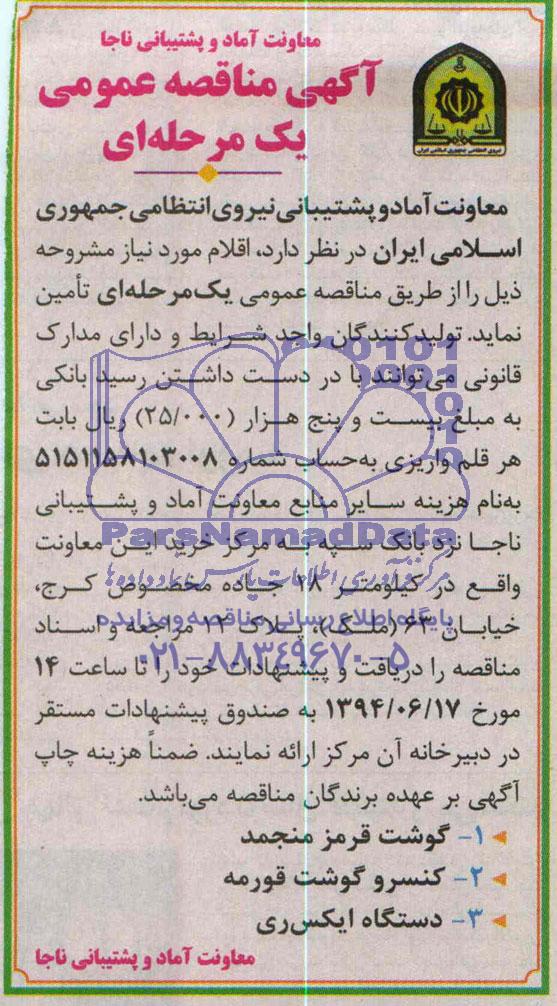 معاونت آماد و پشتیبانی ناجا
آگهی مناقصه عمومی
یک مرحله‌ای
نیروی انتظامی جمهوری اسلامی ایران
معاونت آماد و پشتیبانی نیروی انتظامی جمهوری
اسلامی ایران در نظر دارد، اقلام مورد نیاز مشروحه
ذیل را از طریق مناقصه عمومی یک‌مرحله‌ای تأمین
نماید. تولیدکنندگان واجد شرایط و دارای مدارک
قانونی می‌توانند با در دست داشتن رسید بانکی
به مبلغ بیست و پنج هزار (۲۵/۰۰۰) ریال بابت
هر قلم واریزی به‌حساب شماره ۵۱۵۱۱۵۸۱۰۳۰۰۸
به‌نام هزینه سایر منابع معاونت آماد و پشتیبانی
ناجا نزد بانک سپه به مرکز خرید این معاونت
واقع در کیلومتر ۲۸ جاده مخصوص کرج،
خیابان ۶۳ (ملک)، پلاک ۱۲ مراجعه و اسناد
مناقصه را دریافت و پیشنهادات خود را تا ساعت ۱۴
مورخ ۱۳۹۴/۰۶/۱۷ به صندوق پیشنهادات مستقر
در دبیرخانه آن مرکز ارائه نمایند. ضمناً هزینه چاپ
آگهی بر عهده برندگان مناقصه می‌باشد.
۱- گوشت قرمز منجمد
۲- کنسرو گوشت قورمه
۳- دستگاه ایکس‌ری
معاونت آماد و پشتیبانی ناجا
ParsNamadData
مرکز فرآوری اطلاعات پارس نماد داده ها
پایگاه اطلاع رسانی مناقصه و مزایده
۰۲۱-۸۸۳۴۹۶۷۰-۵